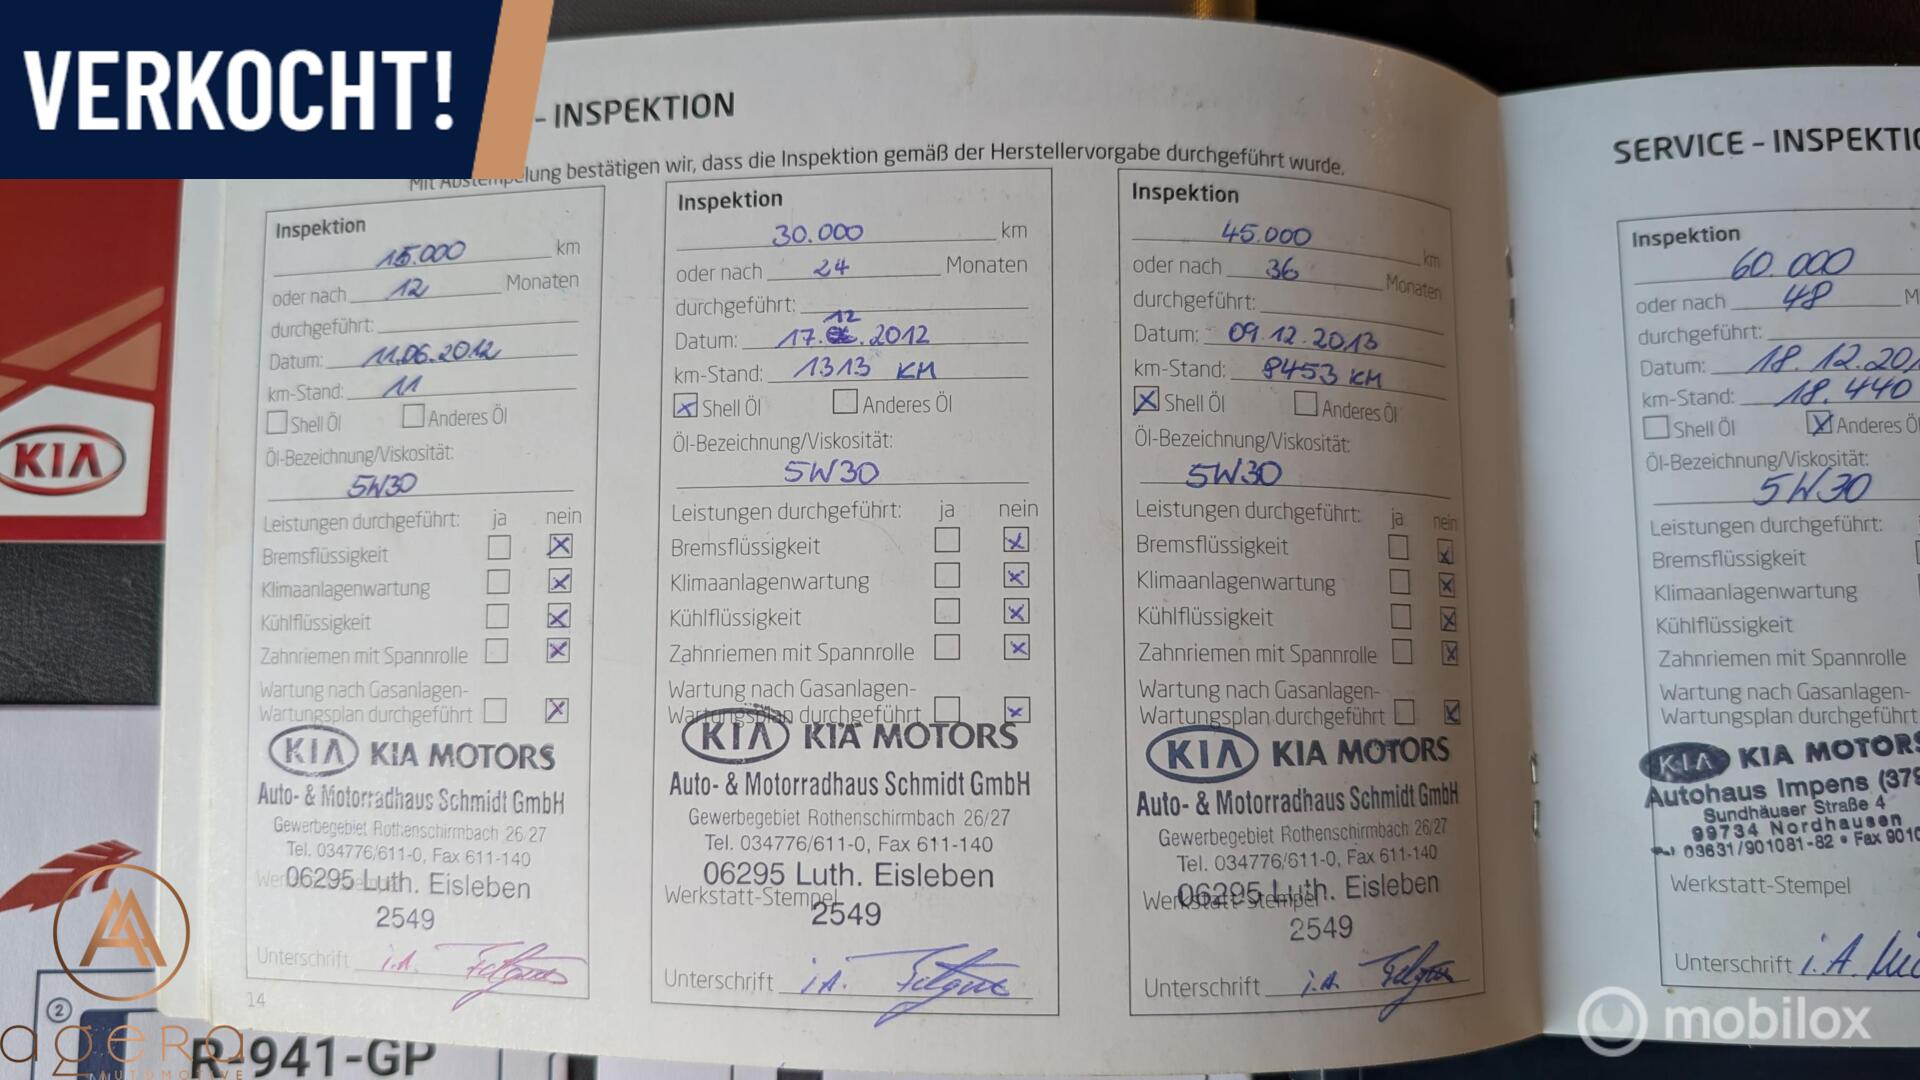 VERKOCHT!
- INSPEKTION
lung bestätigen wir, dass die Inspektion gemäß der Herstellervorgabe durchgeführt wurde.
Inspektion
15.000 km
oder nach 12 Monaten
durchgeführt:
Datum: 11.06.2012
km-Stand: 11
Shell Öl Anderes Öl
Öl-Bezeichnung/Viskosität:
5W30
Leistungen durchgeführt: ja nein
Bremsflüssigkeit
Klimaanlagenwartung
Kühlflüssigkeit
Zahnriemen mit Spannrolle
Wartung nach Gasanlagen-
Wartungsplan durchgeführt
KIA KIA MOTORS
Auto- & Motorradhaus Schmidt GmbH
Gewerbegebiet Rothenschirmbach 26/27
Tel. 034776/611-0, Fax 611-140
06295 Luth. Eisleben
2549
Unterschrift i.A.
14
Inspektion
30.000 km
oder nach 24 Monaten
durchgeführt:
12
Datum: 17. .2012
km-Stand: 1313 KM
Shell Öl Anderes Öl
Öl-Bezeichnung/Viskosität:
5W30
Leistungen durchgeführt: ja nein
Bremsflüssigkeit
Klimaanlagenwartung
Kühlflüssigkeit
Zahnriemen mit Spannrolle
Wartung nach Gasanlagen-
Wartungsplan durchgeführt
KIA KIA MOTORS
Auto- & Motorradhaus Schmidt GmbH
Gewerbegebiet Rothenschirmbach 26/27
Tel. 034776/611-0, Fax 611-140
06295 Luth. Eisleben
Werkstatt-Stempel
2549
Unterschrift i.A.
Inspektion
45.000 km
oder nach 36 Monaten
durchgeführt:
Datum: 09.12.2013
km-Stand: 8453 KM
Shell Öl Anderes Öl
Öl-Bezeichnung/Viskosität:
5W30
Leistungen durchgeführt: ja nein
Bremsflüssigkeit
Klimaanlagenwartung
Kühlflüssigkeit
Zahnriemen mit Spannrolle
Wartung nach Gasanlagen-
Wartungsplan durchgeführt
KIA KIA MOTORS
Auto- & Motorradhaus Schmidt GmbH
Gewerbegebiet Rothenschirmbach 26/27
Tel. 034776/611-0, Fax 611-140
06295 Luth. Eisleben
Werkstatt-Stempel
2549
Unterschrift i.A.
SERVICE - INSPEKTIO
Inspektion
60.000
oder nach 48 M
durchgeführt:
Datum: 18.12.20
km-Stand: 18.440
Shell Öl Anderes Öl
Öl-Bezeichnung/Viskosität:
5W30
Leistungen durchgeführt:
Bremsflüssigkeit
Klimaanlagenwartung
Kühlflüssigkeit
Zahnriemen mit Spannrolle
Wartung nach Gasanlagen-
Wartungsplan durchgeführt
KIA KIA MOTORS
Autohaus Impens (379
Sundhäuser Straße 4
99734 Nordhausen
03631/901081-82 • Fax 9010
Werkstatt-Stempel
Unterschrift i.A.
KIA
2
agera
AUTOMOTIVE
R-941-GP
mobilox